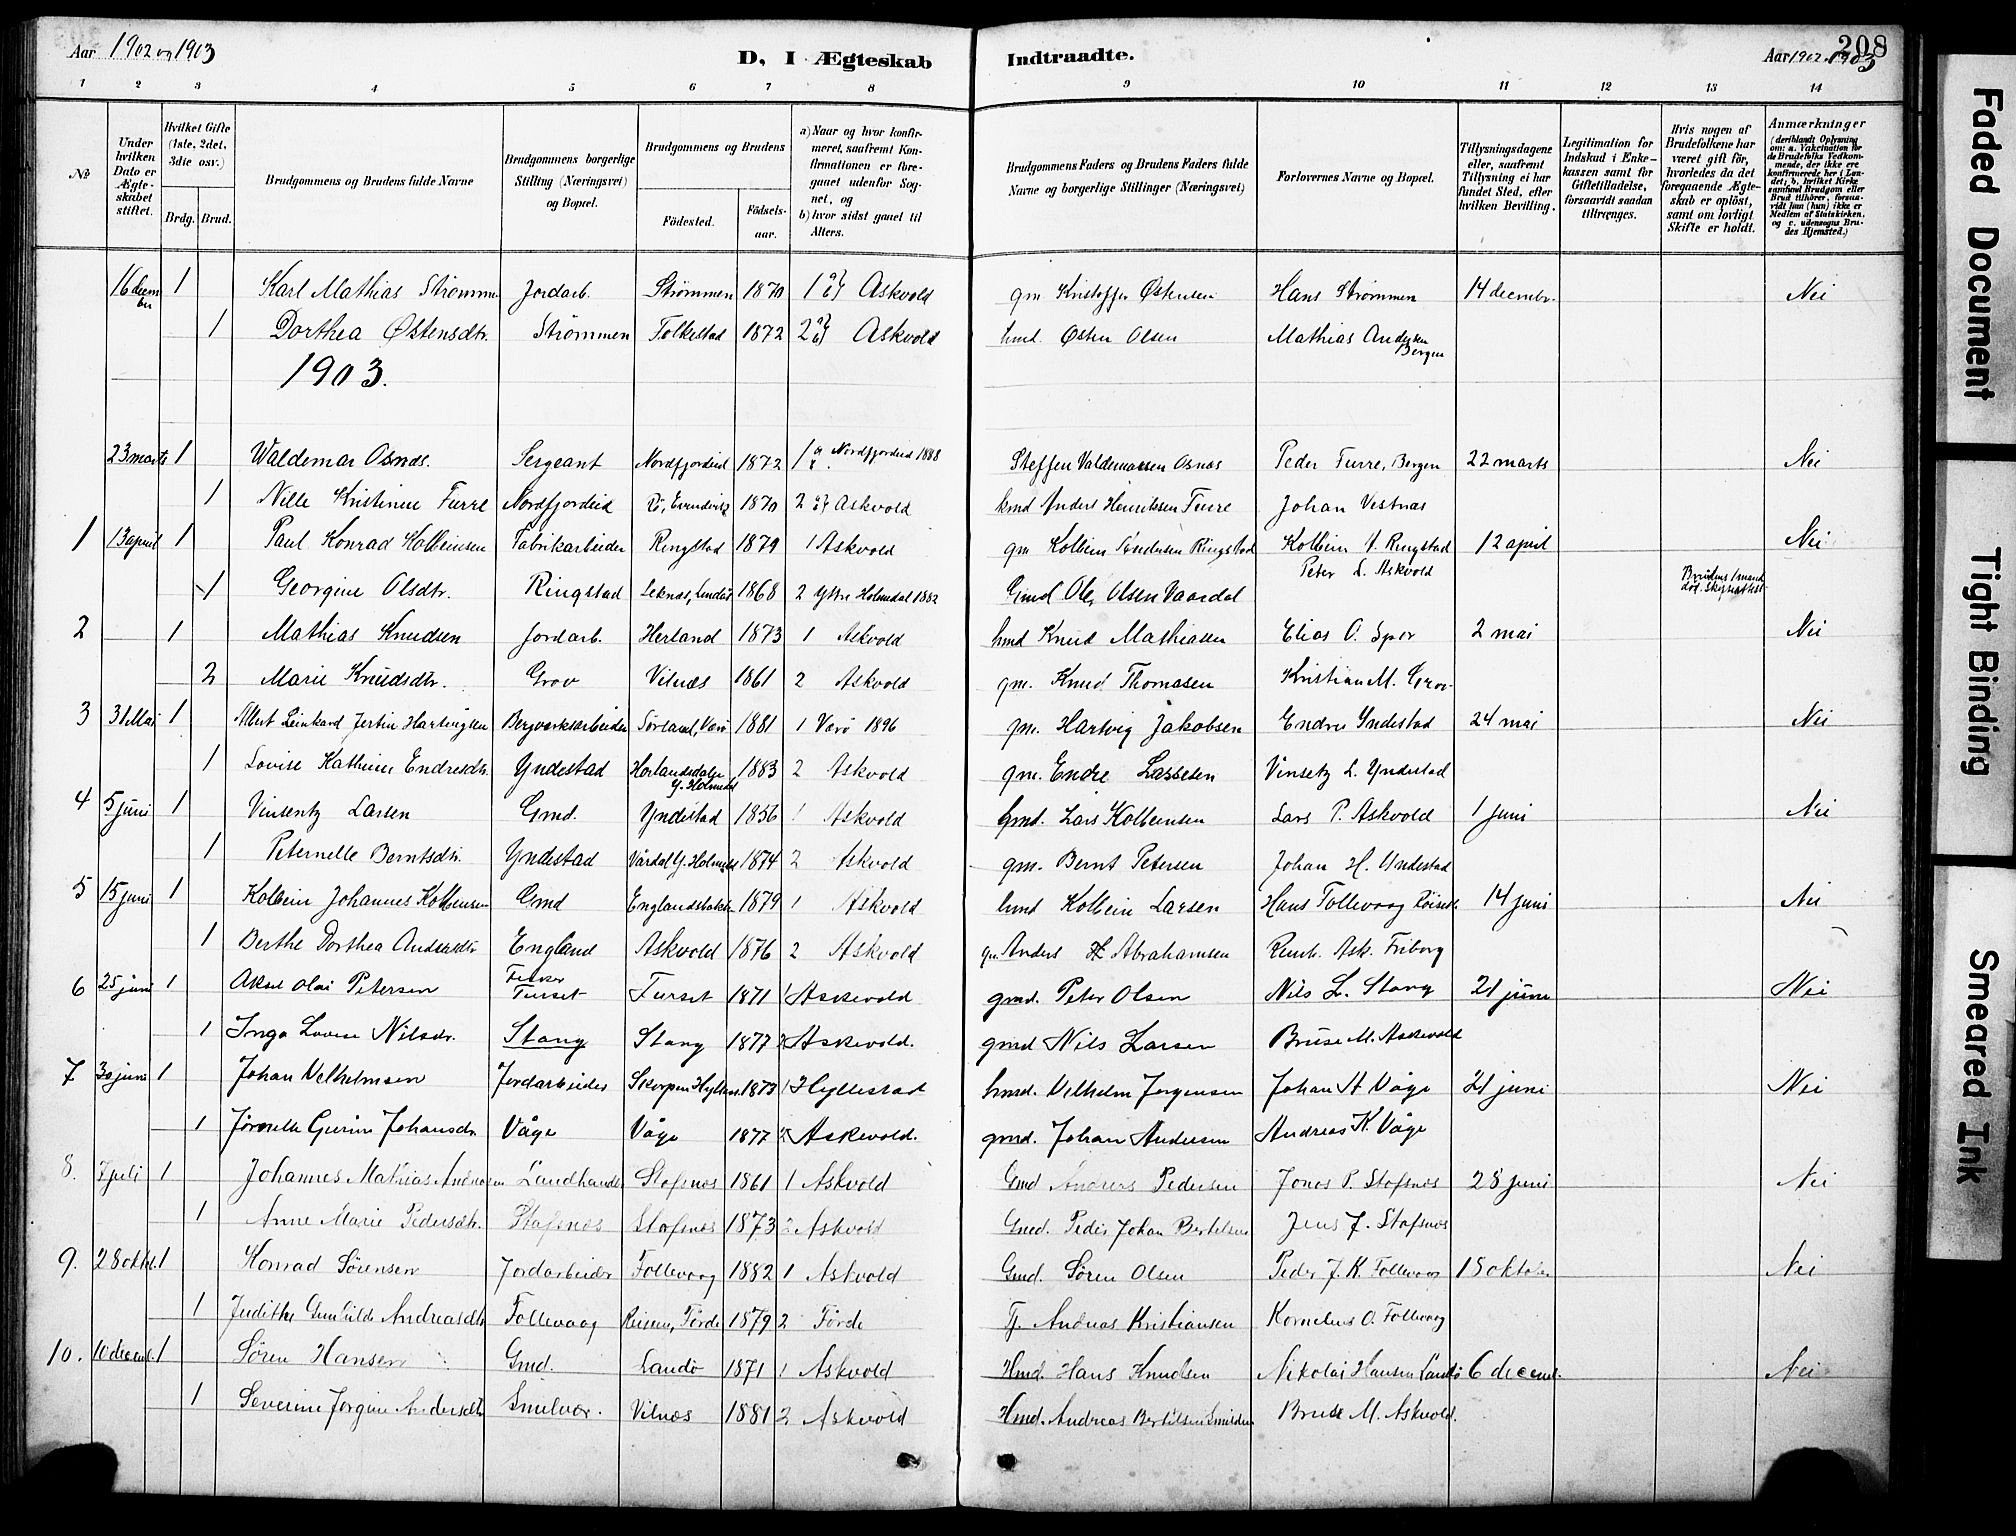 Aar 1902 og 1903 D, I Ægteskab Indtraadte. Aar 1902 1903 208
1 2 3 4 5 6 7 8 9 10 11 12 13 14
№ Under hvilken Dato er Ægteskabet stiftet. Hvilket Gifte (1ste, 2det, 3die osv.) Brdg. Brud. Brudgommens og Brudens fulde Navne Brudgommens borgerlige Stilling (Næringsvei) og Bopæl. Brudgommens og Brudens Födested. Födselsaar. a) Naar og hvor konfirmeret, saafremt Konfirmationen er foregaaet udenfor Sognet, og b) hvor sidst gaaet til Alters. Brudgommens Faders og Brudens Faders fulde Navne og borgerlige Stillinger (Næringsvei) Forlovernes Navne og Bopæl. Tillysningsdagene eller, saafremt Tillysning ei har fundet Sted, efter hvilken Bevilling. Legitimation for Indskud i Enkekassen samt for Giftetilladelse, forsaavidt saadan tiltrænges. Hvis nogen af Brudefolkene har været gift för, hvorledes da det foregaaende Ægteskab er oplöst, samt om lovligt Skifte er holdt. Anmærkninger (deriblandt Oplysning om: a. Vakcination for de Brudefolks Vedkommende, der ikke ere konfirmerede her i Landet, b. hvilket Kirkesamfund Brudgom eller Brud tilhörer, forsaavidt han (hun) ikke er Medlem af Statskirken, og c. udensogns Brudes Hjemsted.)
16 decem ber 1 Karl Mathias Strømmen Jordarb. Strømmen 1870 1 Askvold gm Kristoffer Østensen Hans Strømmen 14 decembr. Nei
1 Dorthea Østensdtr. Strømmen Folkestad 1872 2 Askvold hmd. Østen Olsen Mathias Andersen Bergen
1903.
23 marts 1 Waldemar Osnæs. Sergeant Nordfjordeid 1872 1 Nordfjordeid 1888 Steffen Valdemarsen Osnæs Peder Furre, Bergen 22 marts Nei
1 Nille Kristine Furre Nordfjordeid 1870 2 Askvold hmd Anders Henrikssen Furre Johan Vestnæs
1 13 april 1 Paul Konrad Kolbeinsen Fabrikarbeider Ringstad 1879 1 Askvold gm Kolbein Ringstad Kolbein Ringstad 12 april Nei
Peter L. Askvold
1 Georgine Olsdtr. Ringstad Leknæs, 1868 2 Yttre Holmedal 1882 Gmd Ole Olsen Vaardal Brudens 1 mand død.
2 1 Mathias Knudsen Jordarb. Herland 1873 1 Askvold hmd Knud Mathiassen Elias O. 2 mai Nei
2 Marie Knudsdtr. Grov Vilnæs 1861 2 Askvold gm. Knud Thomasen Kristian M. Grov
3 31 Mai 1 Albert Leinhard Jertin Hartvigsen Bergverksarbeider Sørland, Værö 1881 1 Værö 1896 gm. Hartvig Jakobsen Endre Yndestad 24 mai Nei
1 Lovise Kathrine Endresdtr. Yndestad Horlandsdalen Y. Holmedal 1883 2 Askvold gm. Endre Lassesen Vinsetz L. Yndestad
4 5 juni 1 Vinsentz Larsen Gmd. Yndestad 1856 1 Askvold Gmd. Lars Kolbeinsen Lars P. Askvold 1 juni Nei
1 Peternelle Berntsdtr. Yndestad Vårdal Y. Holmedal 1874 2 Askvold gm. Bernt Petersen Johan H. Yndestad
5 15 juni 1 Kolbein Johannes Kolbeinsen Gmd Englandsbakke 1879 1 Askvold hmd Kolbein Larsen Hans Follevaag 14 juni Nei
1 Berthe Dorthea Andersdtr England Askvold 1876 2 Askvold gm Anders H Abrahamsen Reinh. Ask. Friborg
6 25 juni 1 Aksel Olai Petersen Fisker Furset Furset 1871 1 Askevold gmd. Peter Olsen Nils L. Stang 21 juni Nei
1 Inga Lovise Nilsdr. Stang Stang 1877 2 Askevold. gmd Nils Larsen Bruse M. Askevold
7 30 juni 1 Johan Vilhelmsen Jordarbeider Skorpen Hyllest. 1873 1 Hyllestad hmd. Vilhelm Jørgensen Johan A Våge 21 juni Nei
1 Jørnelle Gurine Johansdr Våge Våge 1877 2 Askevold. gmd. Johan Andersen Andreas K. Våge
8. 7 juli 1 Johannes Mathias Andreasen Landhandl. Stafsnæs 1861 1 Askvold Gmd Andreas Pedersen Jonas P. Stafsnæs 28 juni Nei
1 Anne Marie Pedersdtr. Stafsnæs Stafsnæs 1873 2 Askvold Gmd. Peder Johan Bertelsen Jens J. Stafsnæs
9. 28 oktb. 1 Konrad Sørensen Jordarbeider Follevaag 1882 1 Askvold Gmd. Søren Olsen Peder J. K. Follevaag 18 oktober Nei
1 Judithe Gunhilde Andreasdtr Follevaag Førde 1879 2 Førde Tj. Andreas Kristiansen Kornelius O. Follevaag
10. 10 decemb. 1 Søren Hansen Gmd. Landö 1871 1 Askvold Hmd. Hans Knudsen Nikolai Hansen Landö 6 decemb. Nei
1 Severine Jørgine Andersdtr Smilvær. Vilnæs 1881 2 Askvold Hmd. Andreas Bertelsen Bruse M. Askvold.
Faded Document
Tight Binding
Smeared Ink